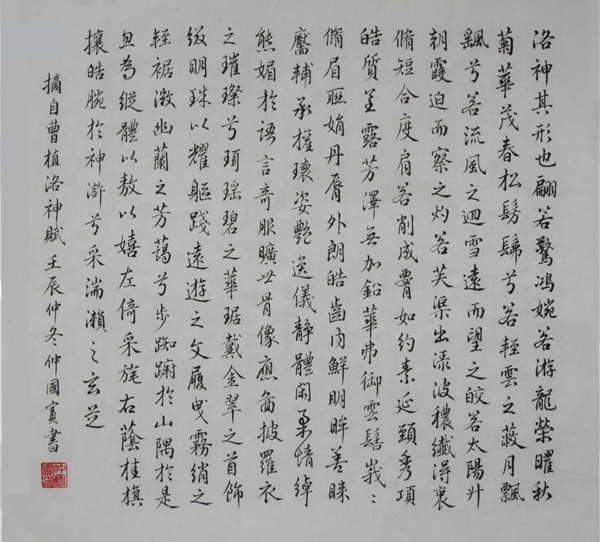 洛神其形也翩若驚鴻婉若游龍榮曜秋
菊華茂春松髣髴兮若輕雲之蔽月飄
颻兮若流風之迴雪遠而望之皎若太陽升
朝霞迫而察之灼若芙渠出淥波穠纖得衷
脩短合度肩若削成腰如約素延頸秀項
皓質呈露芳澤無加鉛華弗御雲髻峩〻
脩眉聯娟丹脣外朗皓齒內鮮明眸善睞
靨輔承權瓌姿艷逸儀靜體閑柔情綽
態媚於語言奇服曠世骨像應啚披羅衣
之璀璨兮珥瑶碧之華琚戴金翠之首飾
綴明珠以耀軀踐遠遊之文履曳霧綃之
輕裾微幽蘭之芳藹兮步踟躕於山隅於是
忽焉縱體以敖以嬉左倚采旄右蔭桂旗
攘皓腕於神滸兮采湍瀨之玄芝
摘自曹植洛神賦壬辰仲冬仲國賓書